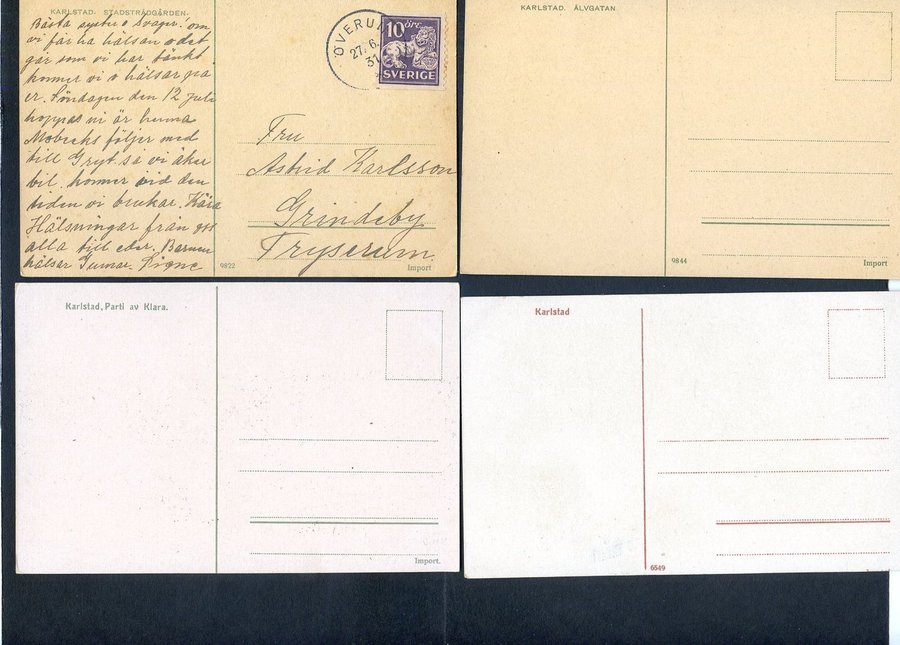 KARLSTAD. STADSTRÄDGÅRDEN.
Bästa syster o Svåger! om
vi får ha hälsan o det
går som vi har tänkt
kommer vi o hälsar på
er. Söndagen den 12 juli
hoppas ni är hemma
Mobecks följer med
till Gryt. så vi åker
bil. kommer vid den
tiden vi brukar. Kära
Hälsningar från oss
alla till eder. Barnen
hälsar Gunnar. Signe
ÖVERU
27.6.
31
10 öre
SVERIGE
Fru
Astrid Karlsson
Grindeby
Tryserum.
9822
Import
KARLSTAD. ÄLVGATAN.
9844
Import
Karlstad, Parti av Klara.
Import.
Karlstad
6549